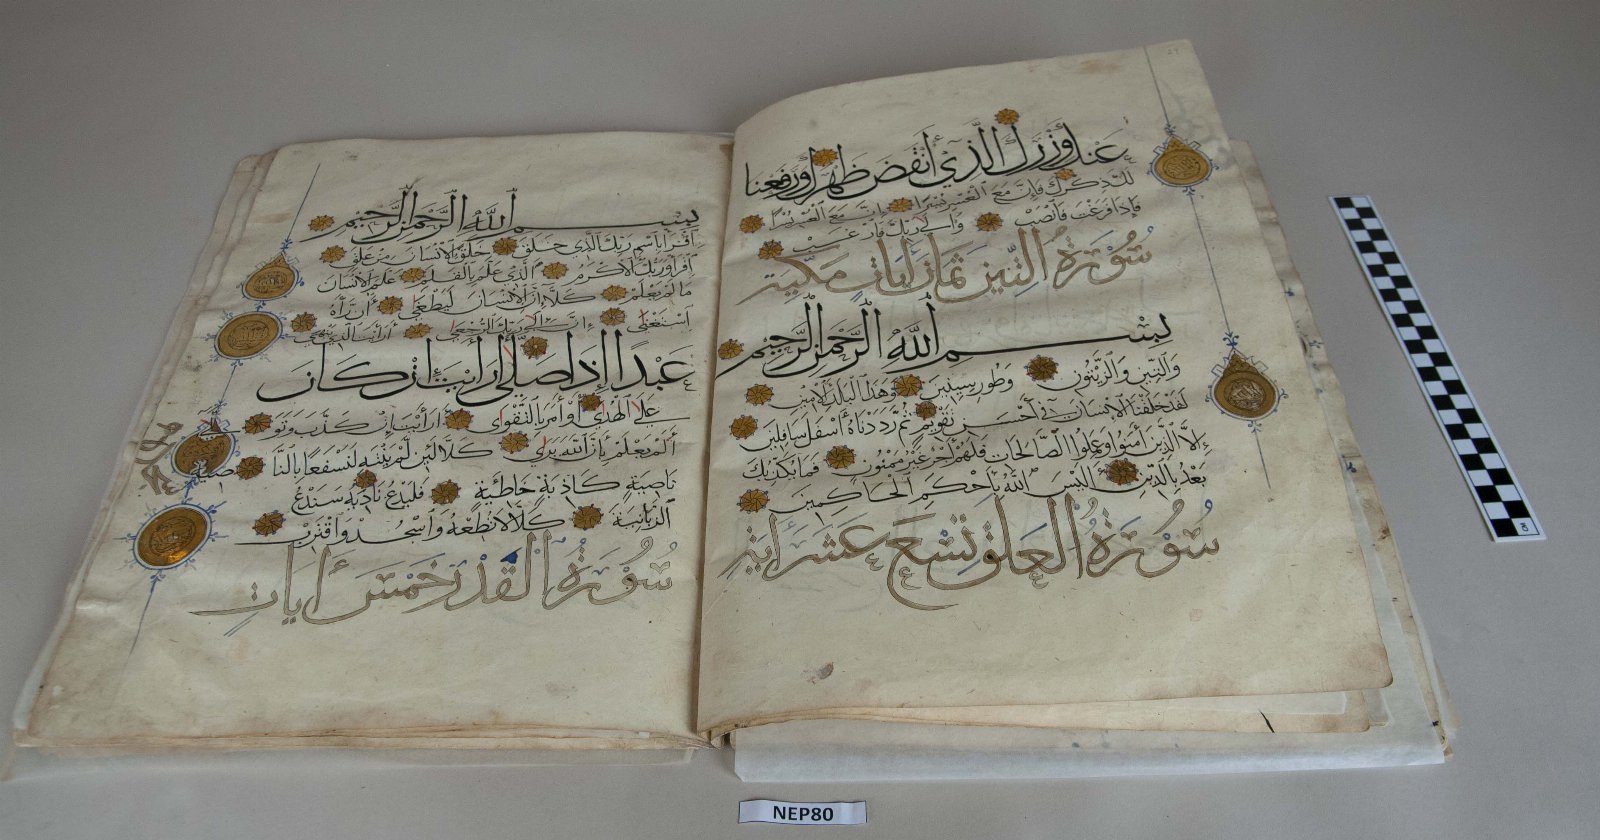 عنك وزرك الذي أنقض ظهرك ورفعنا
لك ذكرك فإن مع العسر يسرا إن مع العسر يسرا
فإذا فرغت فانصب وإلى ربك فارغب
سورة التين ثمان آيات مكية
بسم الله الرحمن الرحيم
والتين والزيتون وطور سينين وهذا البلد الأمين
لقد خلقنا الإنسان في أحسن تقويم ثم رددناه أسفل سافلين
إلا الذين آمنوا وعملوا الصالحات فلهم أجر غير ممنون فما يكذبك
بعد بالدين أليس الله بأحكم الحاكمين
سورة العلق تسع عشر آية
بسم الله الرحمن الرحيم
اقرأ باسم ربك الذي خلق خلق الإنسان من علق
اقرأ وربك الأكرم الذي علم بالقلم علم الإنسان
ما لم يعلم كلا إن الإنسان ليطغى أن رآه
استغنى إن إلى ربك الرجعى أرأيت الذي ينهى
عبدا إذا صلى أرأيت إن كان
على الهدى أو أمر بالتقوى أرأيت إن كذب وتو
ألم يعلم بأن الله يرى كلا لئن لم ينته لنسفعا بالنا صية
ناصية كاذبة خاطئة فليدع ناديه سندع
الزبانية كلا لا تطعه واسجد واقترب
سورة القدر خمس آيات
NEP80